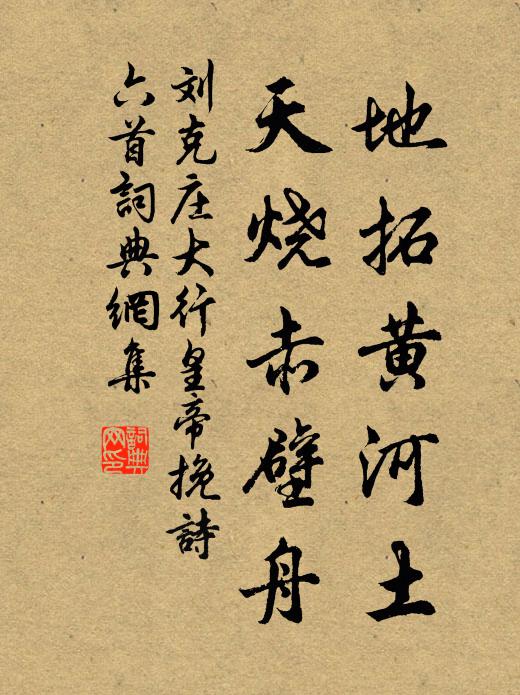 地拓黄河土
天烧赤壁舟
刘克庄大行皇帝挽詩
六首詞典網集
詞典
网印